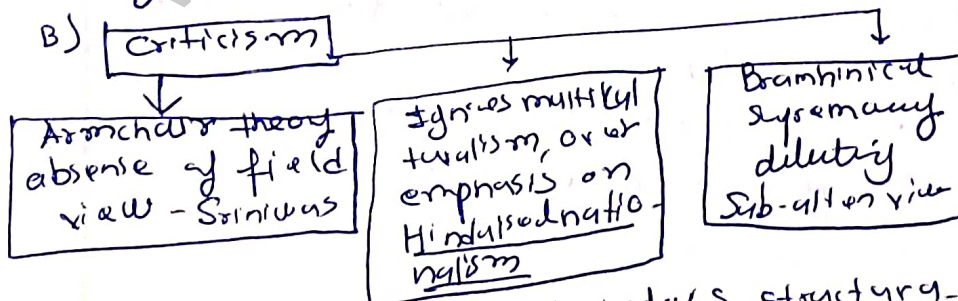 B) Criticism
Armchair theory
absense of field
view - Sriniwas
Ignores multikul
turalism, over
emphasis on
Hinduised natio-
nalism
Bramhinical
supremacy
diluting
Sub-altern view
structura-